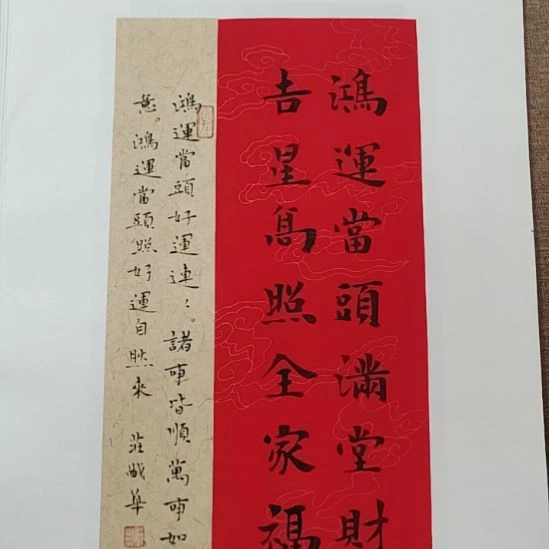 鴻運當頭滿堂財
吉星高照全家福
鴻運當頭好運連〻。諸事皆順萬事如
意。鴻運當頭照好運自然來
莊
華